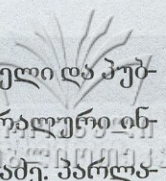 ელი და პუბ-
რალური ინ-
აძე. პარლა-